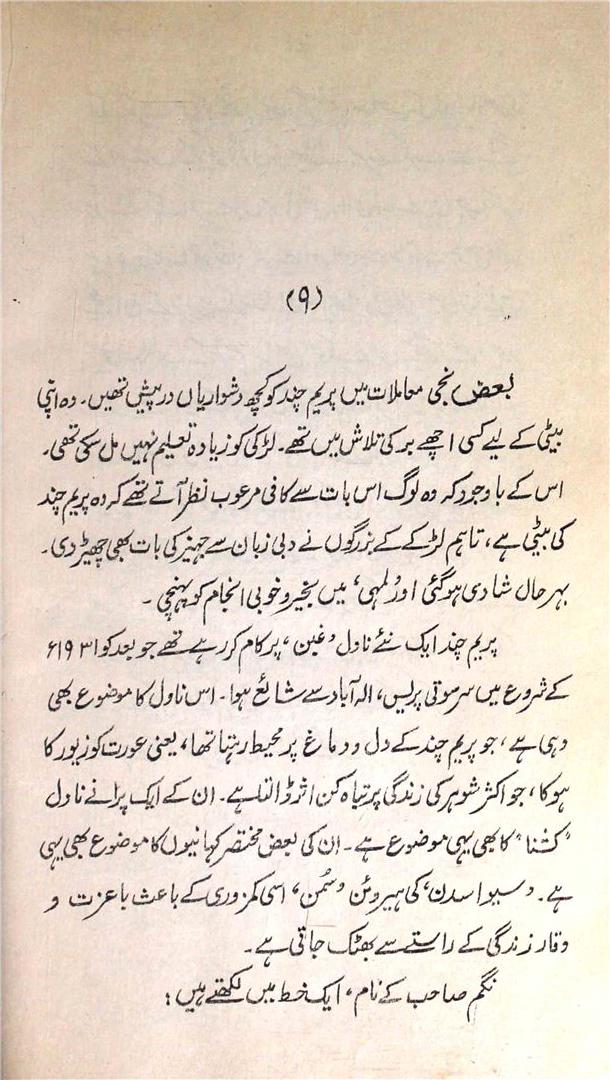 (۹)
بعض نجی معاملات میں پریم چند کو کچھ دشواریاں درپیش تھیں۔ وہ اپنی
بیٹی کے لیے کسی اچھے بر کی تلاش میں تھے۔ لڑکی کو زیادہ تعلیم نہیں مل سکی تھی۔
اس کے باوجود کہ وہ لوگ اس بات سے کافی مرعوب نظر آتے تھے کہ وہ پریم چند
کی بیٹی ہے، تاہم لڑکے کے بزرگوں نے دبی زبان سے جہیز کی بات بھی چھیڑ دی۔
بہر حال شادی ہو گئی اور 'لمہی' میں بخیر و خوبی انجام کو پہنچی۔
پریم چند ایک نئے ناول 'غبن' پر کام کر رہے تھے جو بعد کو ۱۹۳۱ء
کے شروع میں سرسوتی پریس، الہ آباد سے شائع ہوا۔ اس ناول کا موضوع بھی
وہی ہے، جو پریم چند کے دل و دماغ پر محیط رہتا تھا، یعنی عورت کو زیور کا
ہوکا، جو اکثر شوہر کی زندگی پر تباہ کن اثر ڈالتا ہے۔ ان کے ایک پرانے ناول
"کشنا" کا بھی یہی موضوع ہے۔ ان کی بعض مختصر کہانیوں کا موضوع بھی یہی
ہے۔ 'سیوا سدن' کی ہیروئن 'سُمن' اسی کمزوری کے باعث باعزت و
وقار زندگی کے راستے سے بھٹک جاتی ہے۔
نگم صاحب کے نام، ایک خط میں لکھتے ہیں: